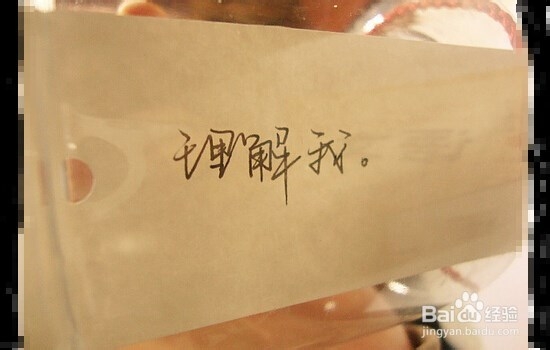 理解我。
Baidu经验
jingyan.baidu.com